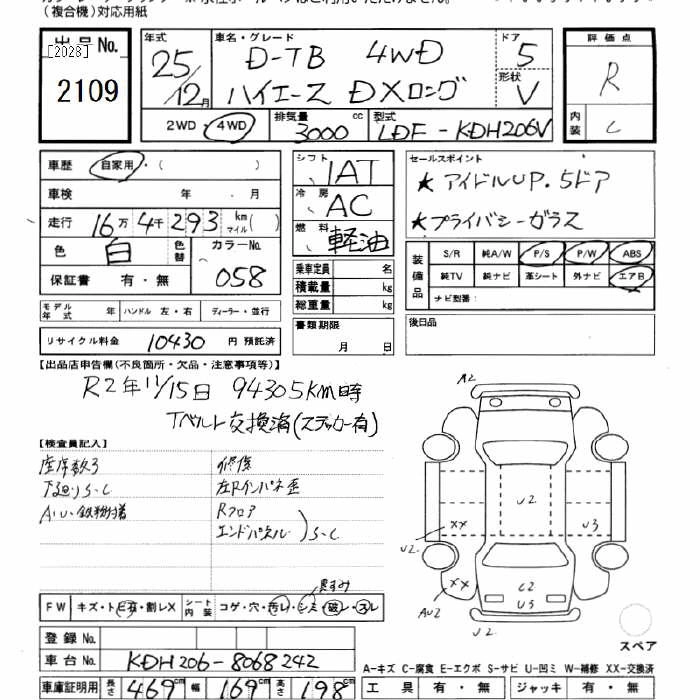 （複合機）対応用紙
出品No.
[2028]
2109
年式
25/12月
車名・グレード
D-TB 4WD
ハイエース DXロング
ドア
5
形状
V
評価点
R
内装
C
2WD・4WD
排気量
3000cc
型式
LDF-KDH206V
車歴 自家用・（ ）
車検 年・月
走行 16万4千293km マイル（ ）
色 白 色替
カラーNo. 058
保証書 有・無
シフト 1AT
冷房 AC
燃料 軽油
乗車定員 名
積載量 kg
総重量 kg
セールスポイント
★アイドルUP.5ドア
★プライバシーガラス
装備品
S/R 純A/W P/S P/W ABS
純TV 純ナビ 革シート 外ナビ エアB
ナビ型番：
モデル年式 年 ハンドル 左・右 ディーラー・並行
リサイクル料金 10430 円 預託済
書類期限
月 日
後日品
【出品店申告欄(不良箇所・欠品・注意事項等)】
R2年11/15日 94305KM時
Tベルト交換済(ステッカー有)
【検査員記入】
座席数3
下廻りS-C
A・U・鉄粉
修復
左Rインパネ歪
Rフロア
エンドパネル
S-C
A2
U2
XX
U2
U3
XX
AU2
C2
U3
U2
スペア
FW キズ・トビ石・割レX
シート内装 コゲ・穴・汚レ・シミ・破レ・スレ
登録No.
車台No. KDH206-8068242
車庫証明用 長さ 469cm 幅 169cm 高さ 198cm
A-キズ C-腐食 E-エクボ S-サビ U-凹ミ W-補修 XX-交換済
工具 有・無 ジャッキ 有・無